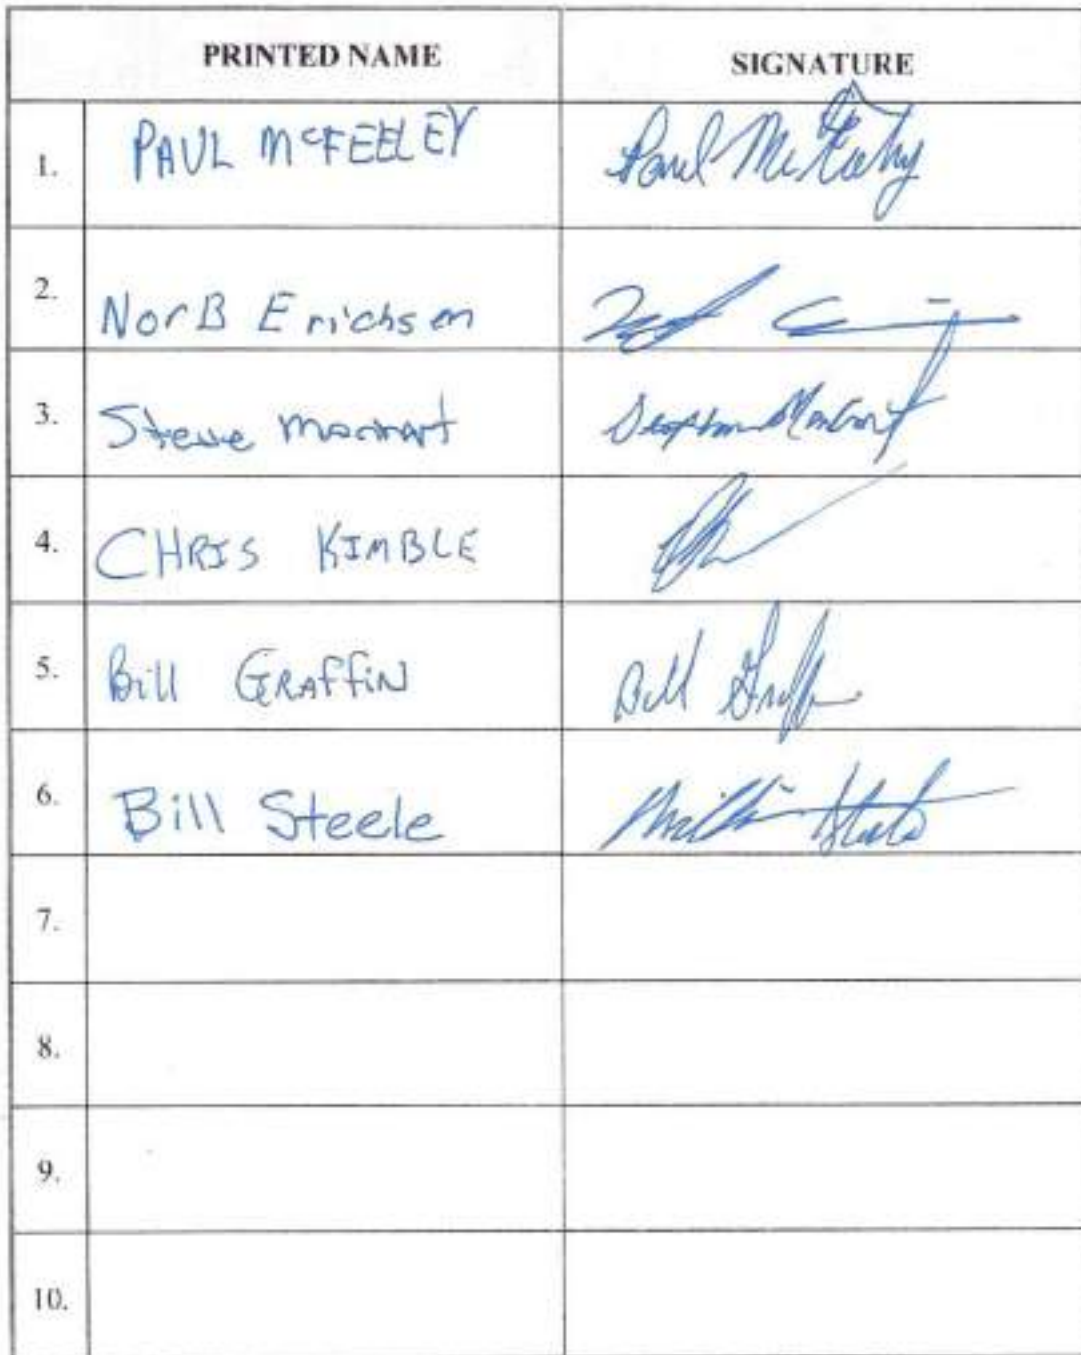 PRINTED NAME SIGNATURE
1. PAUL McFEELEY Paul McFeeley
2. NorB Erichsen
3. Steve
4. CHRIS KIMBLE
5. Bill GRAFFiN Bill Graffin
6. Bill Steele William Steele
7.
8.
9.
10.